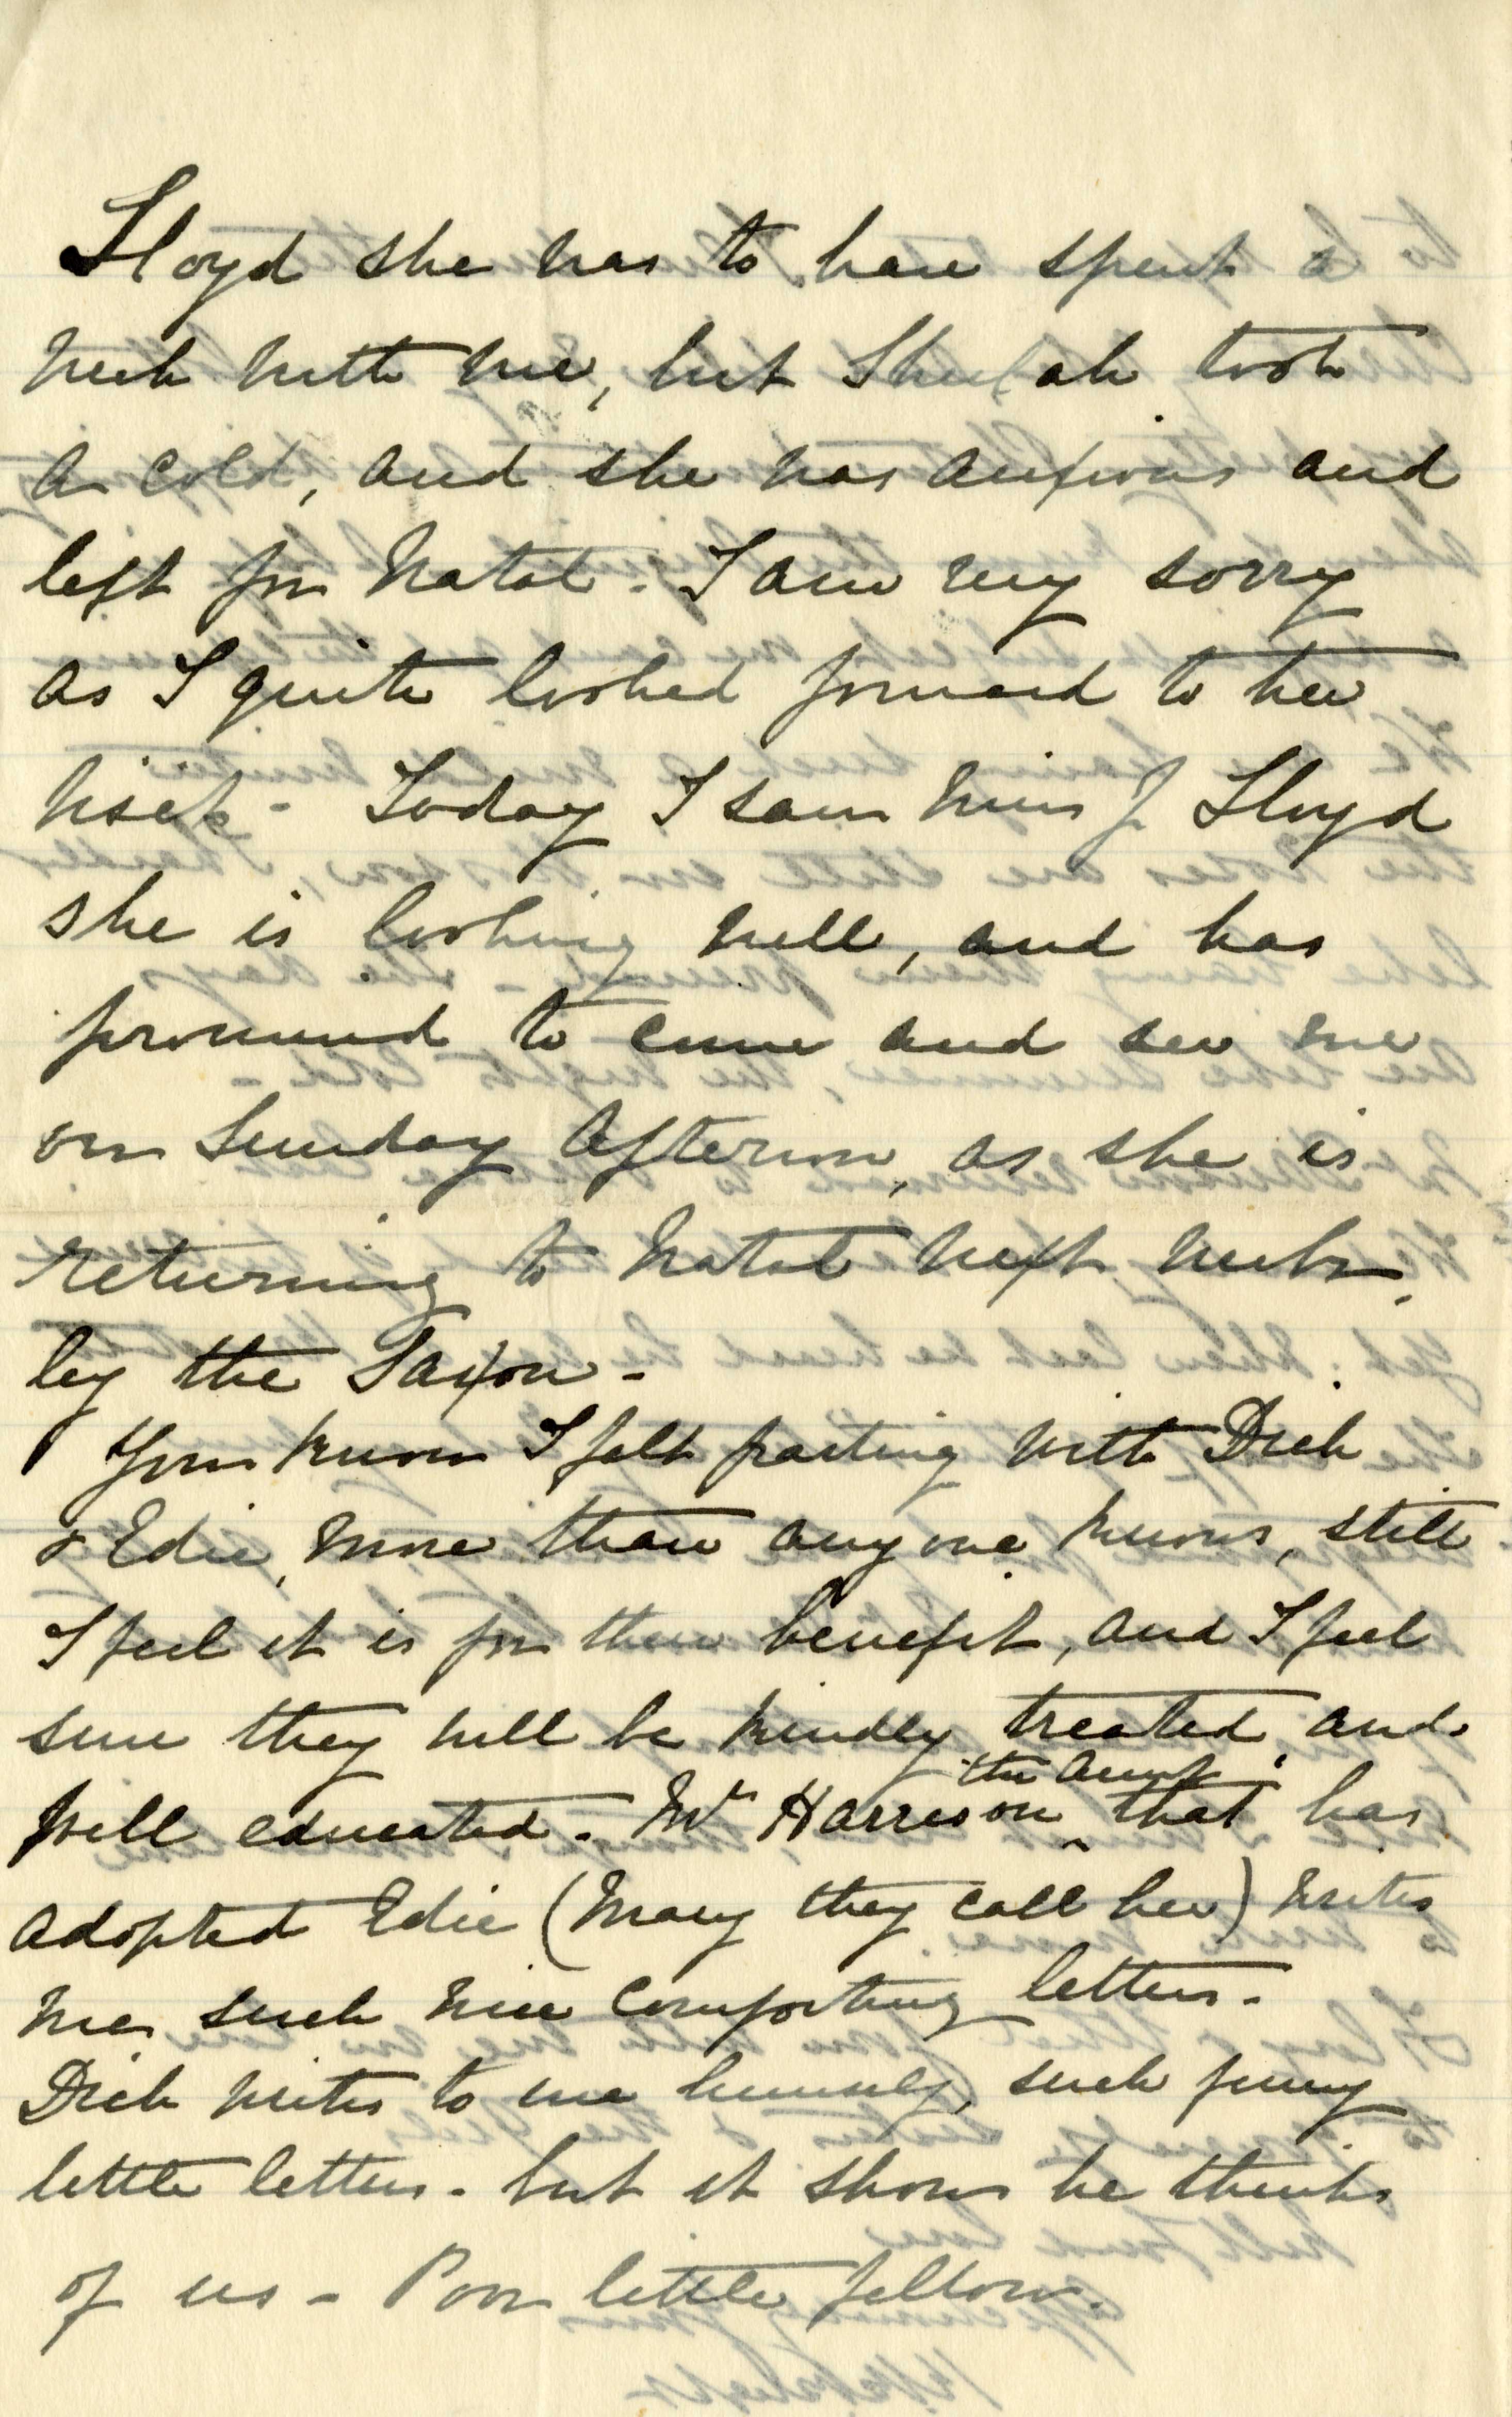 Lloyd she was to have spent a
week with me, but Sheilah took
a cold, and she was anxious and
left for Natal. I am very sorry
as I quite looked forward to her
visit - Today I saw Miss J Lloyd
she is looking well, and has
promised to come and see me
on Sunday afternoon, as she is
returning to Natal next week,
by the Saxon -
You know I felt parting with Dick
& Edie, more than anyone knows, still
I feel it is for their benefit, and I feel
sure they will be kindly treated and
well educated. Mrs Harrison ^the Aunt^ that has
adopted Edie (Mary they call her) writes
me such nice comforting letters.
Dick writes to me himself, such funny
little letters - but it shows he thinks
of us - Poor little fellow.